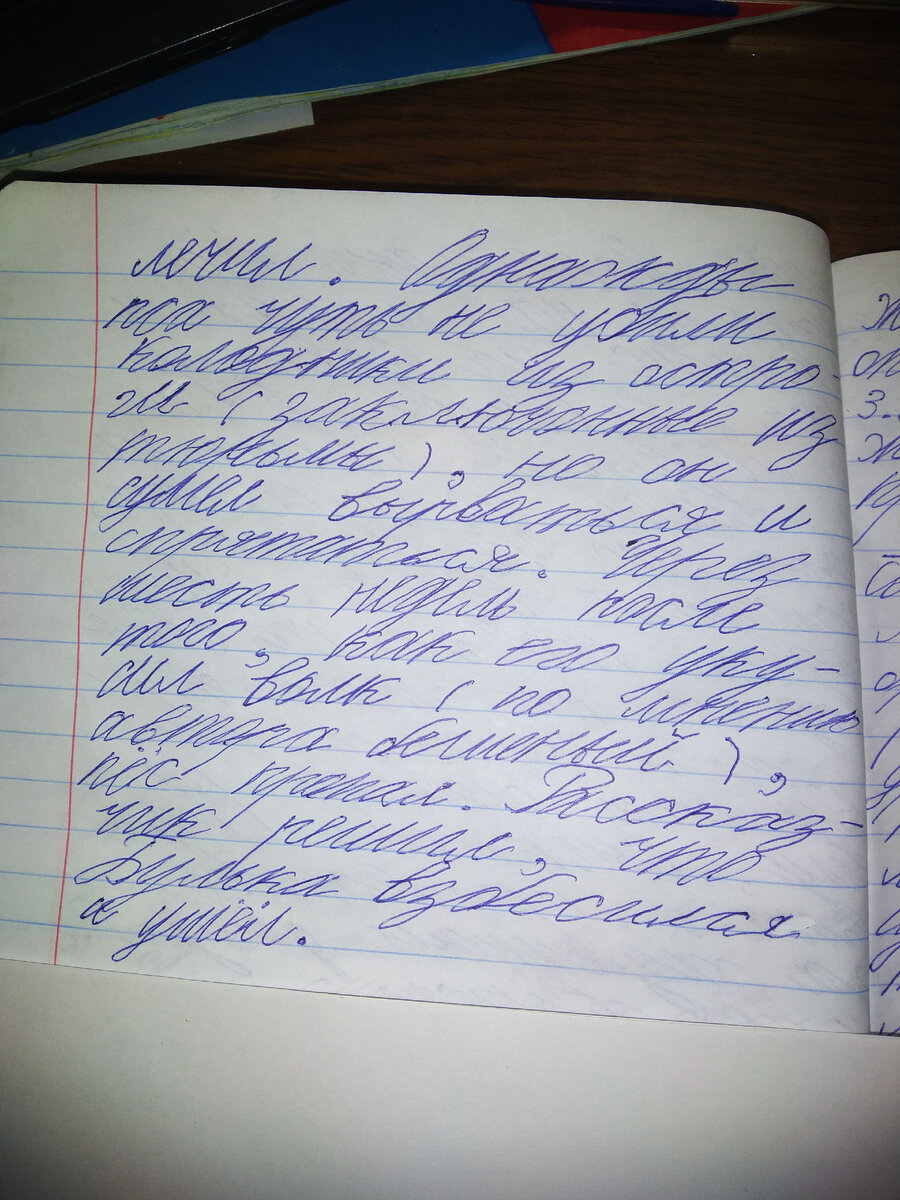 лечил. Однажды
пса чуть не убили
колодники из остро-
га (заключённые из
тюрьмы), но он
сумел вырваться и
спрятаться. Через
шесть недель после
того, как его уку-
сил волк (по мнению
автора бешеный),
пёс пропал. Рассказ-
чик решил, что
Булька взбесился
и ушёл.